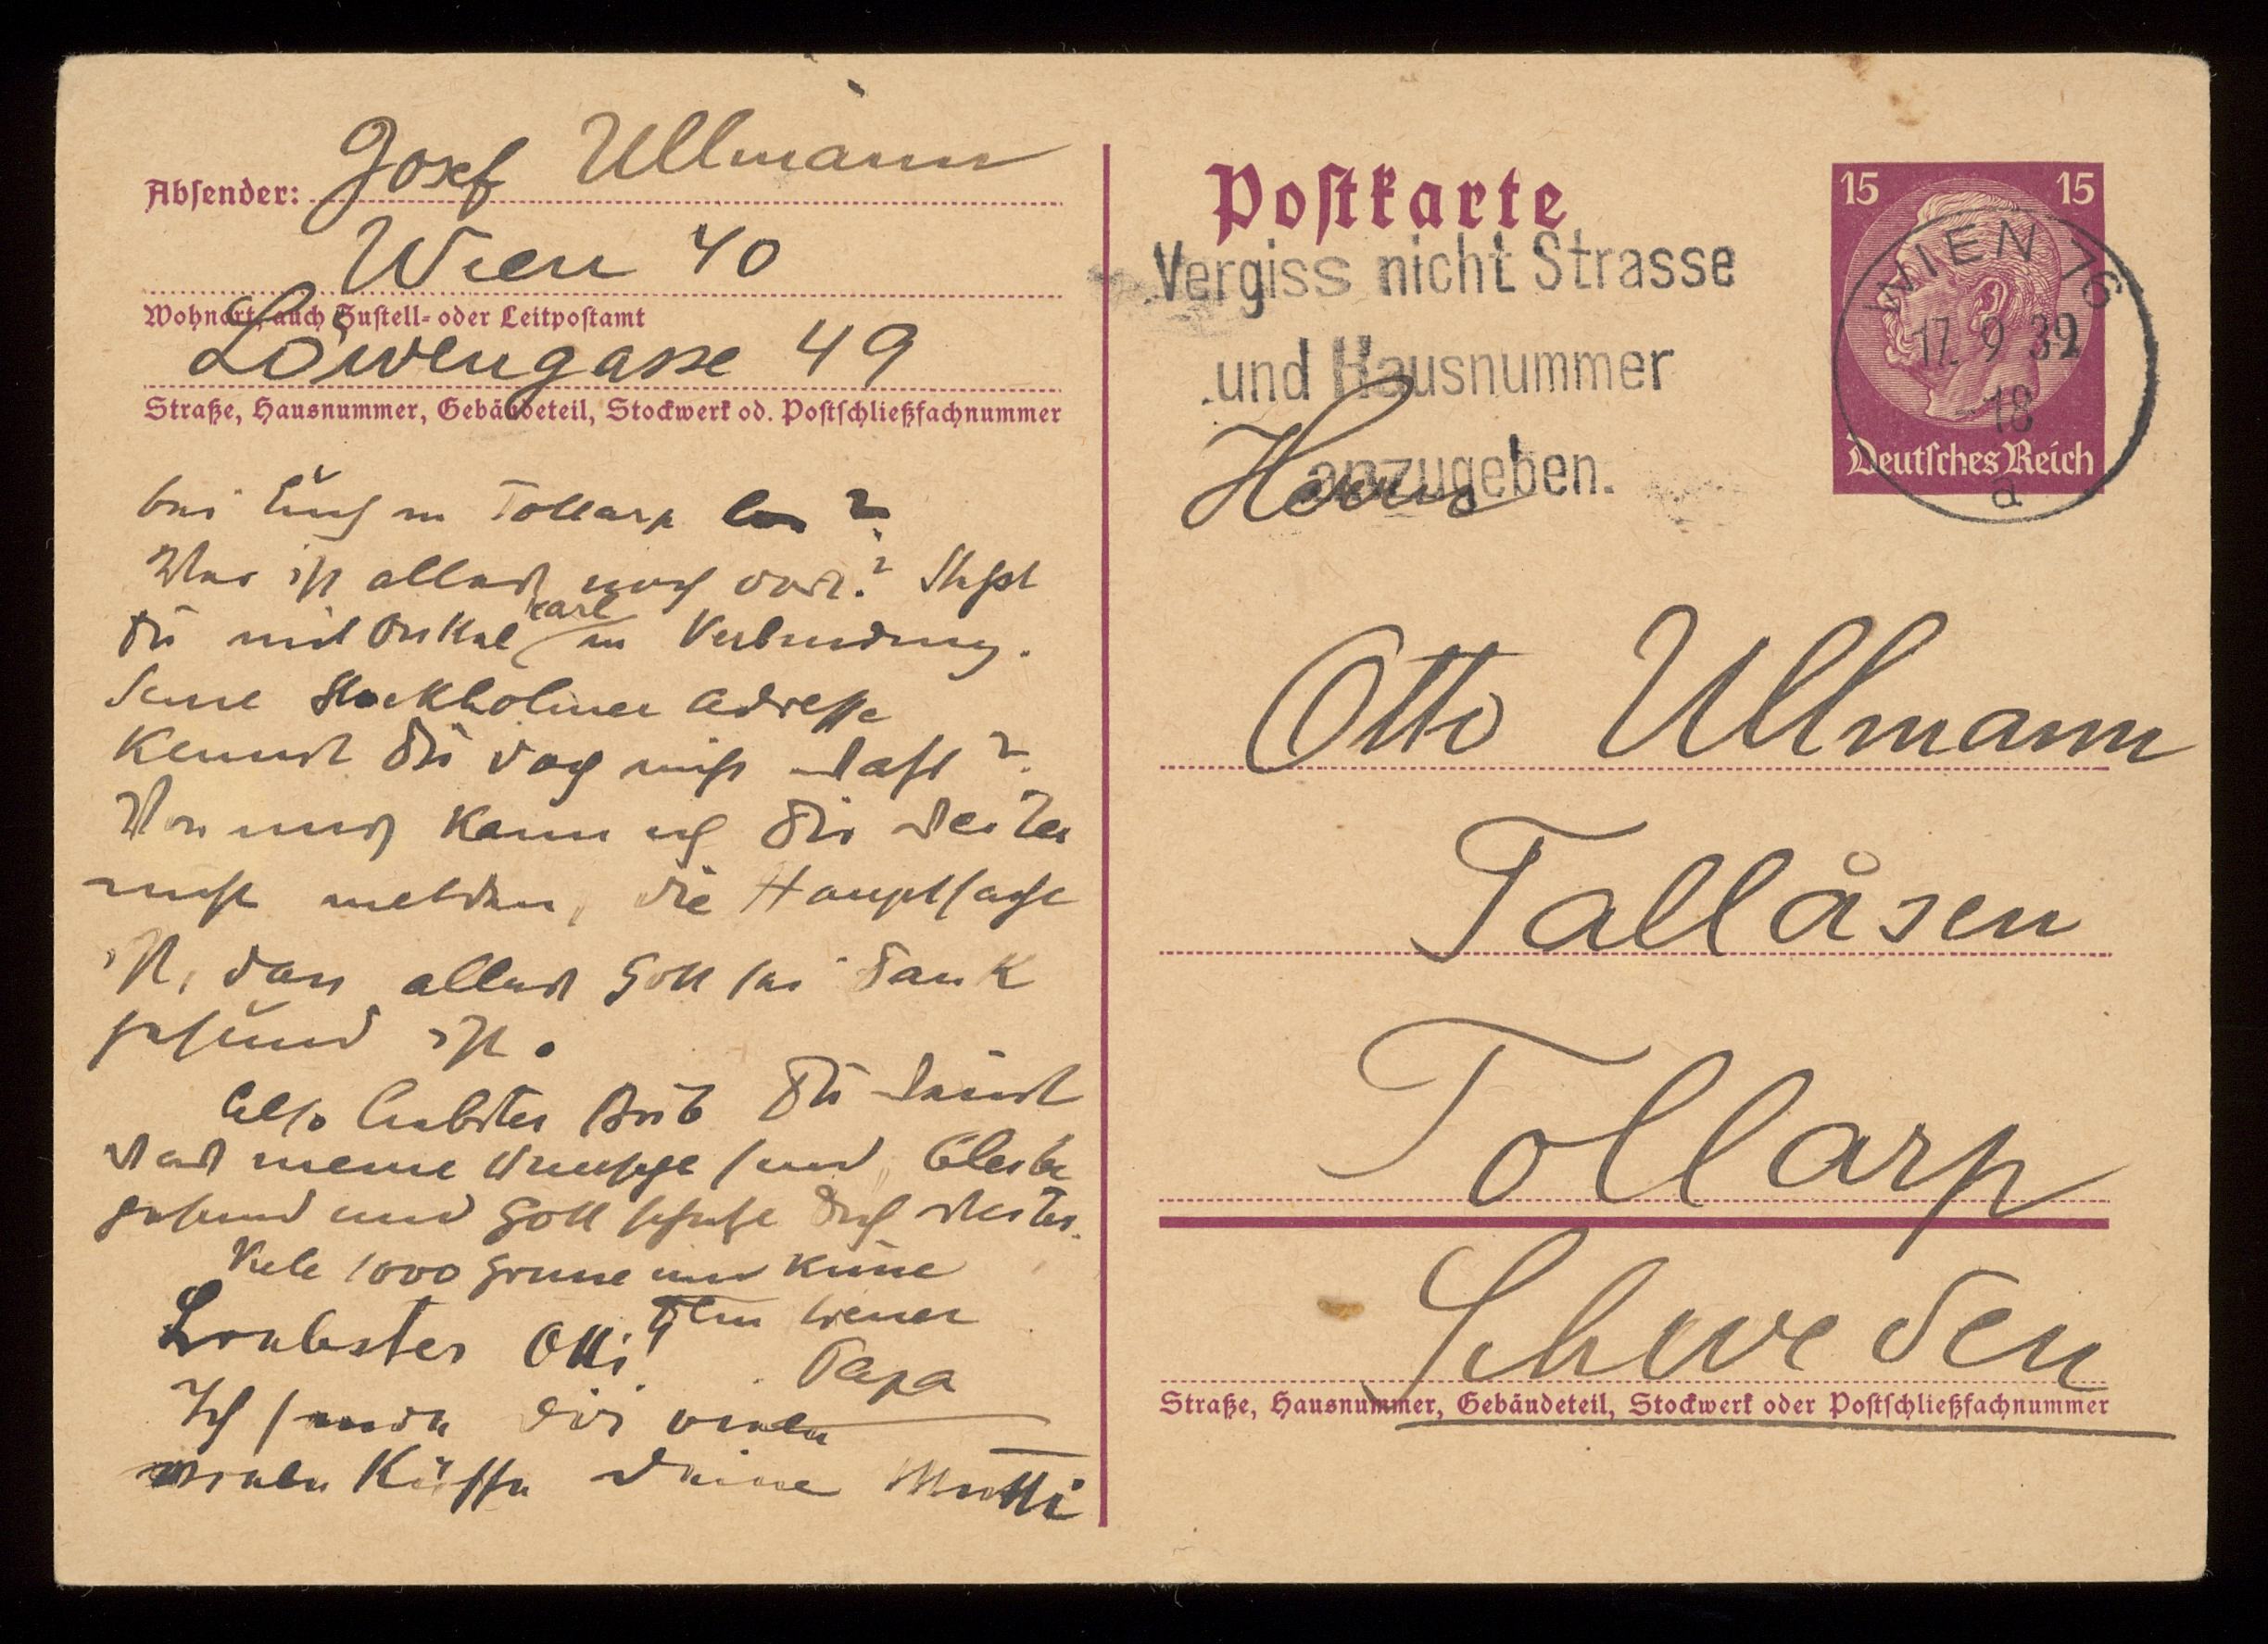 Absender: Josef Ullmann
Wien 40
Wohnort, auch Zustell- oder Leitpostamt
Löwengasse 49
Straße, Hausnummer, Gebäudeteil, Stockwerk od. Postschließfachnummer
bei Euch in Tollarp los?
Wer ist alles noch dort? Stehst
Du mit Onkel Karl in Verbindung.
Seine Stockholmer Adresse
kennst Du doch nicht wahr?
Von uns kann ich Dir weiter
nicht melden, die Hauptsache
ist, dass alles Gott sei Dank
gesund ist.
Also liebster Bub Du weisst
was meine Wünsche sind, bleibe
gesund und Gott schütze Dich weiter.
Viele 1000 Grüsse und Küsse
Dein treuer
Papa
Liebster Otti!
Ich sende Dir viele
viele Küsse Deine Mutti
Postkarte
Vergiss nicht Strasse
und Hausnummer
anzugeben.
15 15
Deutsches Reich
WIEN 76
17. 9 39
-18
a
Herrn
Otto Ullmann
Tallåsen
Tollarp
Schweden
Straße, Hausnummer, Gebäudeteil, Stockwerk oder Postschließfachnummer